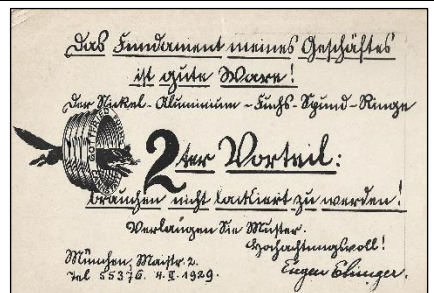 Das Fundament meines Geschäftes
ist gute Ware!
Der Nickel-Aluminium-Fuchs-Spund-Ringe
2ter Vorteil:
brauchen nicht lackiert zu werden!
Verlangen Sie Muster.
Hochachtungsvoll!
München, Maistr. 2.
Tel 55376. 4.II.1929.
Eugen